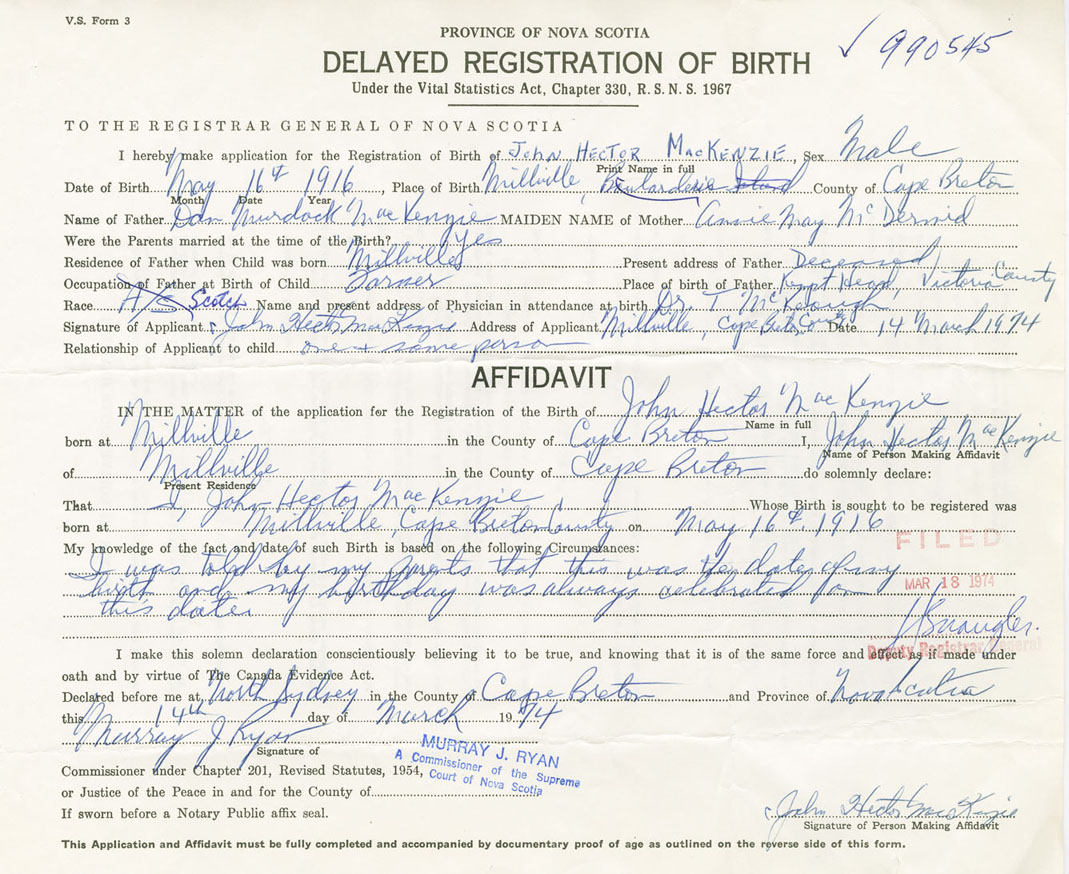 V.S. Form 3
PROVINCE OF NOVA SCOTIA
✓ 990545
DELAYED REGISTRATION OF BIRTH
Under the Vital Statistics Act, Chapter 330, R.S.N.S. 1967
TO THE REGISTRAR GENERAL OF NOVA SCOTIA
I hereby make application for the Registration of Birth of John Hector MacKenzie, Sex Male
Print Name in full
Date of Birth May 16th 1916, Place of Birth Millville, Boularderie Island County of Cape Breton
Month Date Year
Name of Father Dan Murdock MacKenzie MAIDEN NAME of Mother Annie May McDermid
Were the Parents married at the time of the Birth? yes
Residence of Father when Child was born Millville Present address of Father Deceased
Occupation of Father at Birth of Child Farmer Place of birth of Father Kempt Head, Victoria County
Race Scotch Name and present address of Physician in attendance at birth Dr. T. McKeough
Signature of Applicant John Hector MacKenzie Address of Applicant Millville, Cape Breton County Date 14 March 1974
Relationship of Applicant to child one & same person
AFFIDAVIT
IN THE MATTER of the application for the Registration of the Birth of John Hector MacKenzie
Name in full
born at Millville in the County of Cape Breton I, John Hector MacKenzie
Name of Person Making Affidavit
of Millville in the County of Cape Breton do solemnly declare:
Present Residence
That I, John Hector MacKenzie Whose Birth is sought to be registered was
born at Millville, Cape Breton County on May 16th, 1916
My knowledge of the fact and date of such Birth is based on the following Circumstances:
FILED
I was told by my parents that this was the date of my
MAR 18 1974
birth and my birthday was always celebrated on
this date.
Deputy Registrar General
I make this solemn declaration conscientiously believing it to be true, and knowing that it is of the same force and effect as if made under
oath and by virtue of The Canada Evidence Act.
Declared before me at North Sydney in the County of Cape Breton and Province of Nova Scotia
this 14th day of March 1974
Murray J Ryan
Signature of
MURRAY J. RYAN
A Commissioner of the Supreme
Court of Nova Scotia
Commissioner under Chapter 201, Revised Statutes, 1954,
or Justice of the Peace in and for the County of
If sworn before a Notary Public affix seal.
John Hector MacKenzie
Signature of Person Making Affidavit
This Application and Affidavit must be fully completed and accompanied by documentary proof of age as outlined on the reverse side of this form.